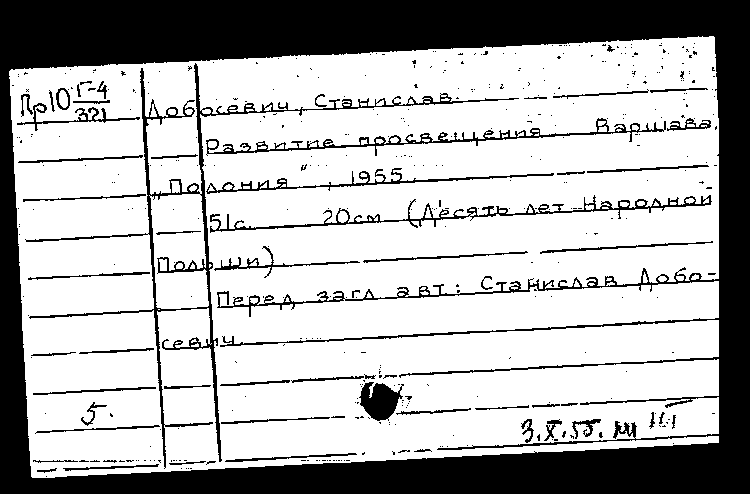 Пр10 Г-4/321
Добосевич, Станислав.
Развитие просвещения Варшава,
„Полония", 1955.
51с. 20см (Десять лет Народной
Польши).
Перед загл авт: Станислав Добо-
севич.
5.
3.X.55.